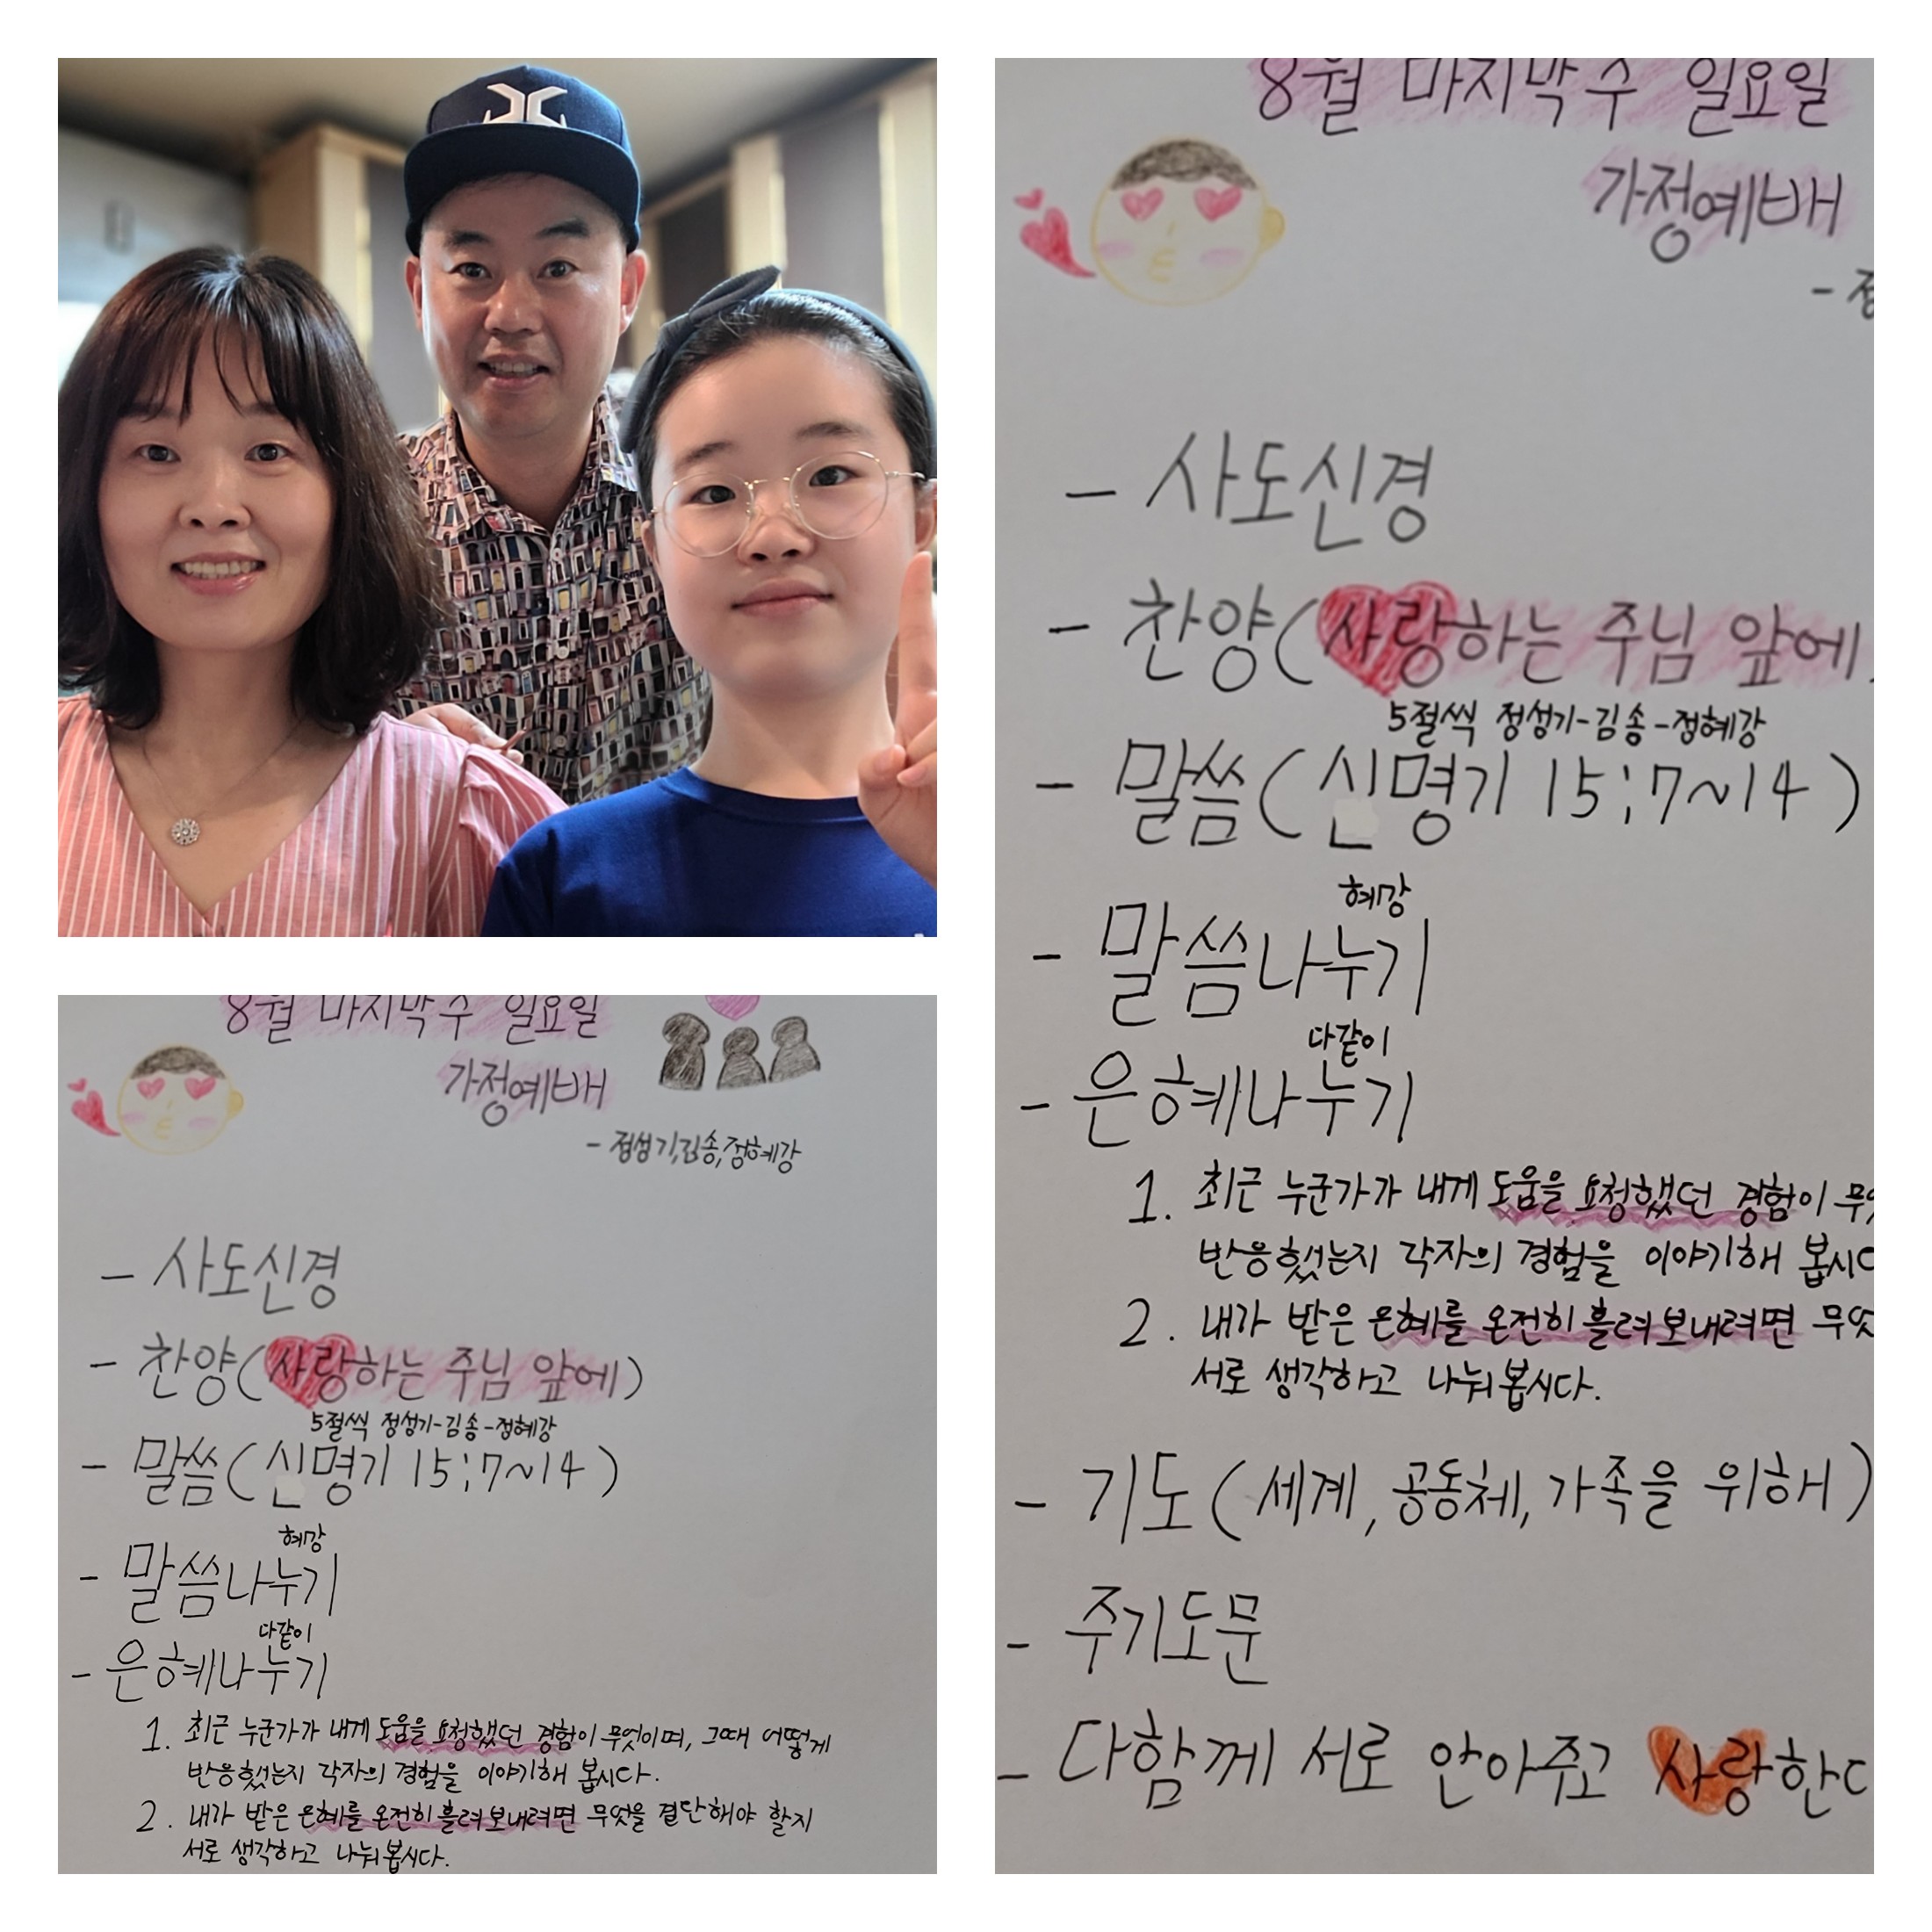 8월 마지막 주 일요일
가정예배
- 정성기,김송,정혜강
- 사도신경
- 찬양(사랑하는 주님 앞에)
5절씩 정성기-김송-정혜강
- 말씀(신명기 15:7~14)
혜강
- 말씀나누기
다같이
- 은혜나누기
1. 최근 누군가가 내게 도움을 요청했던 경험이 무엇이며, 그때 어떻게
반응했는지 각자의 경험을 이야기해 봅시다.
2. 내가 받은 은혜를 온전히 흘려보내려면 무엇을 결단해야 할지
서로 생각하고 나눠봅시다.
8월 마지막 주 일요일
가정예배
- 정
- 사도신경
- 찬양(사랑하는 주님 앞에
5절씩 정성기-김송-정혜강
- 말씀(신명기 15:7~14)
혜강
- 말씀나누기
다같이
- 은혜나누기
1. 최근 누군가가 내게 도움을 요청했던 경험이 무
반응했는지 각자의 경험을 이야기해 봅시
2. 내가 받은 은혜를 온전히 흘려보내려면 무엇
서로 생각하고 나눠봅시다.
- 기도(세계, 공동체, 가족을 위해)
- 주기도문
- 다함께 서로 안아주고 사랑한